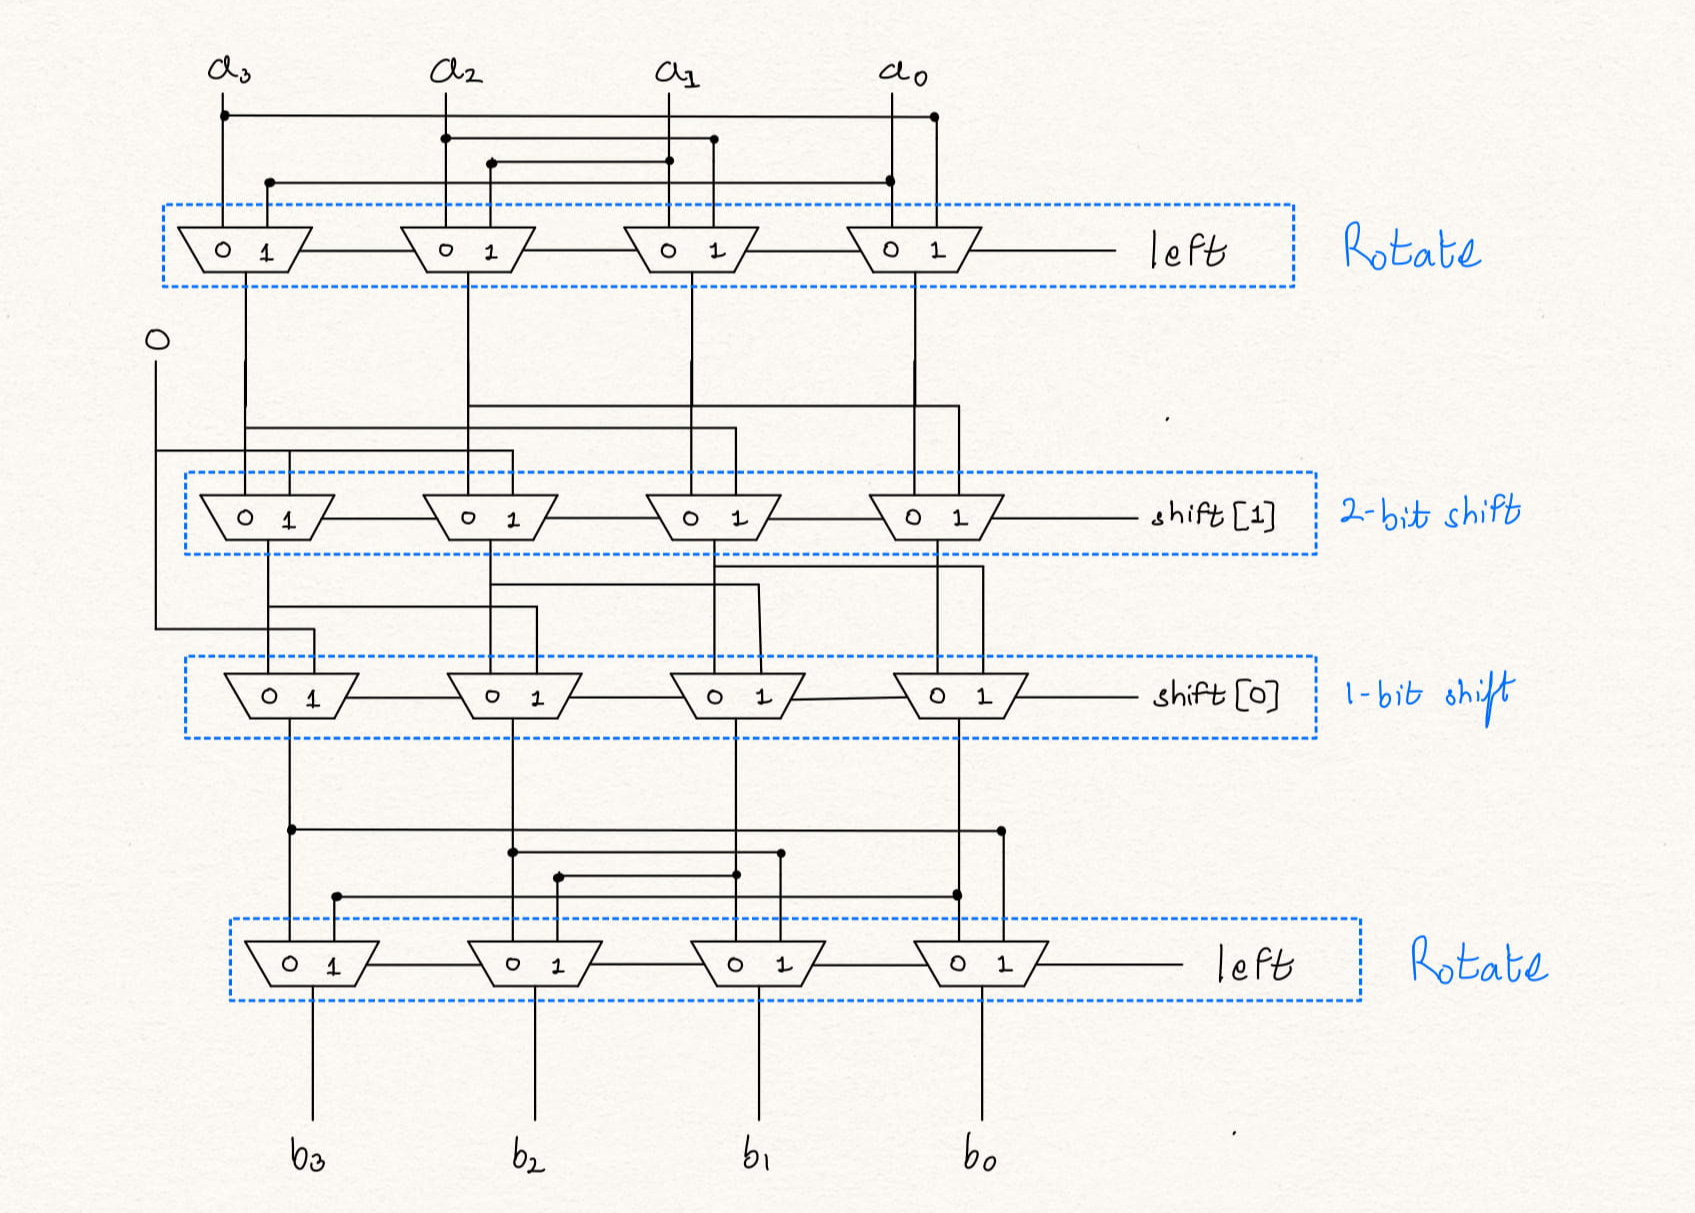 a3 a2 a1 a0
0 1 0 1 0 1 0 1 left Rotate
0
0 1 0 1 0 1 0 1 shift[1] 2-bit shift
0 1 0 1 0 1 0 1 shift[0] 1-bit shift
0 1 0 1 0 1 0 1 left Rotate
b3 b2 b1 b0